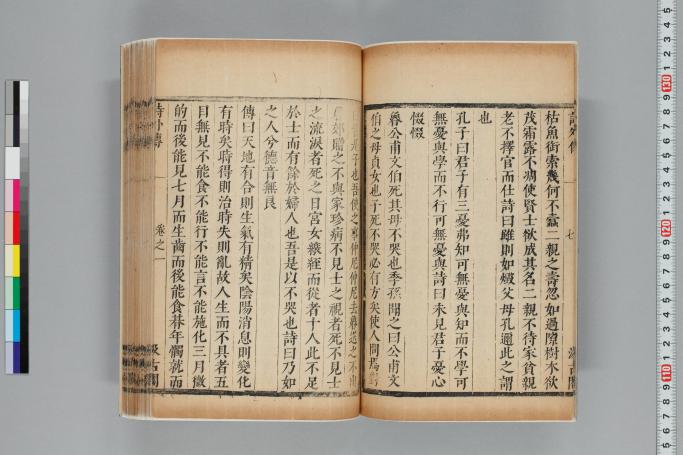 枯魚銜索幾何不蠹二親之壽忽如過隙樹木欲
茂霜露不凋使賢士欲成其名二親不待家貧親
老不擇官而仕詩曰雖則如燬父母孔邇此之謂
也
孔子曰君子有三憂弗知可無憂與知而不學可
無憂與學而不行可無憂與詩曰未見君子憂心
惙惙
魯公甫文伯死其母不哭也季孫聞之曰公甫文
伯之母貞女也子死不哭必有方矣使人問焉對
子也吾使之事仲尼仲尼去魯送之不出
郊贈之不與家珍病不見士之視者死不見士
之流淚者死之日宮女縗絰而從者十人此不足
於士而有餘於婦人也吾是以不哭也詩曰乃如
之人兮德音無良
傳曰天地有合則生氣有精矣陰陽消息則變化
有時矣時得則治時失則亂故人生而不具者五
目無見不能食不能行不能言不能施化三月微
的而後能見七月而生齒而後能食朞年髑就而
詩外傳
卷之一
汲古閣